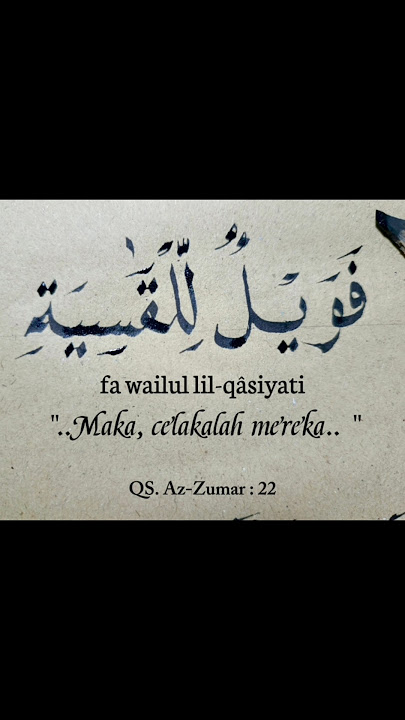 فَوَيْلٌ لِّلْقٰسِيَةِ
fa wailul lil-qâsiyati
"..Maka, celakalah mereka.. "
QS. Az-Zumar : 22